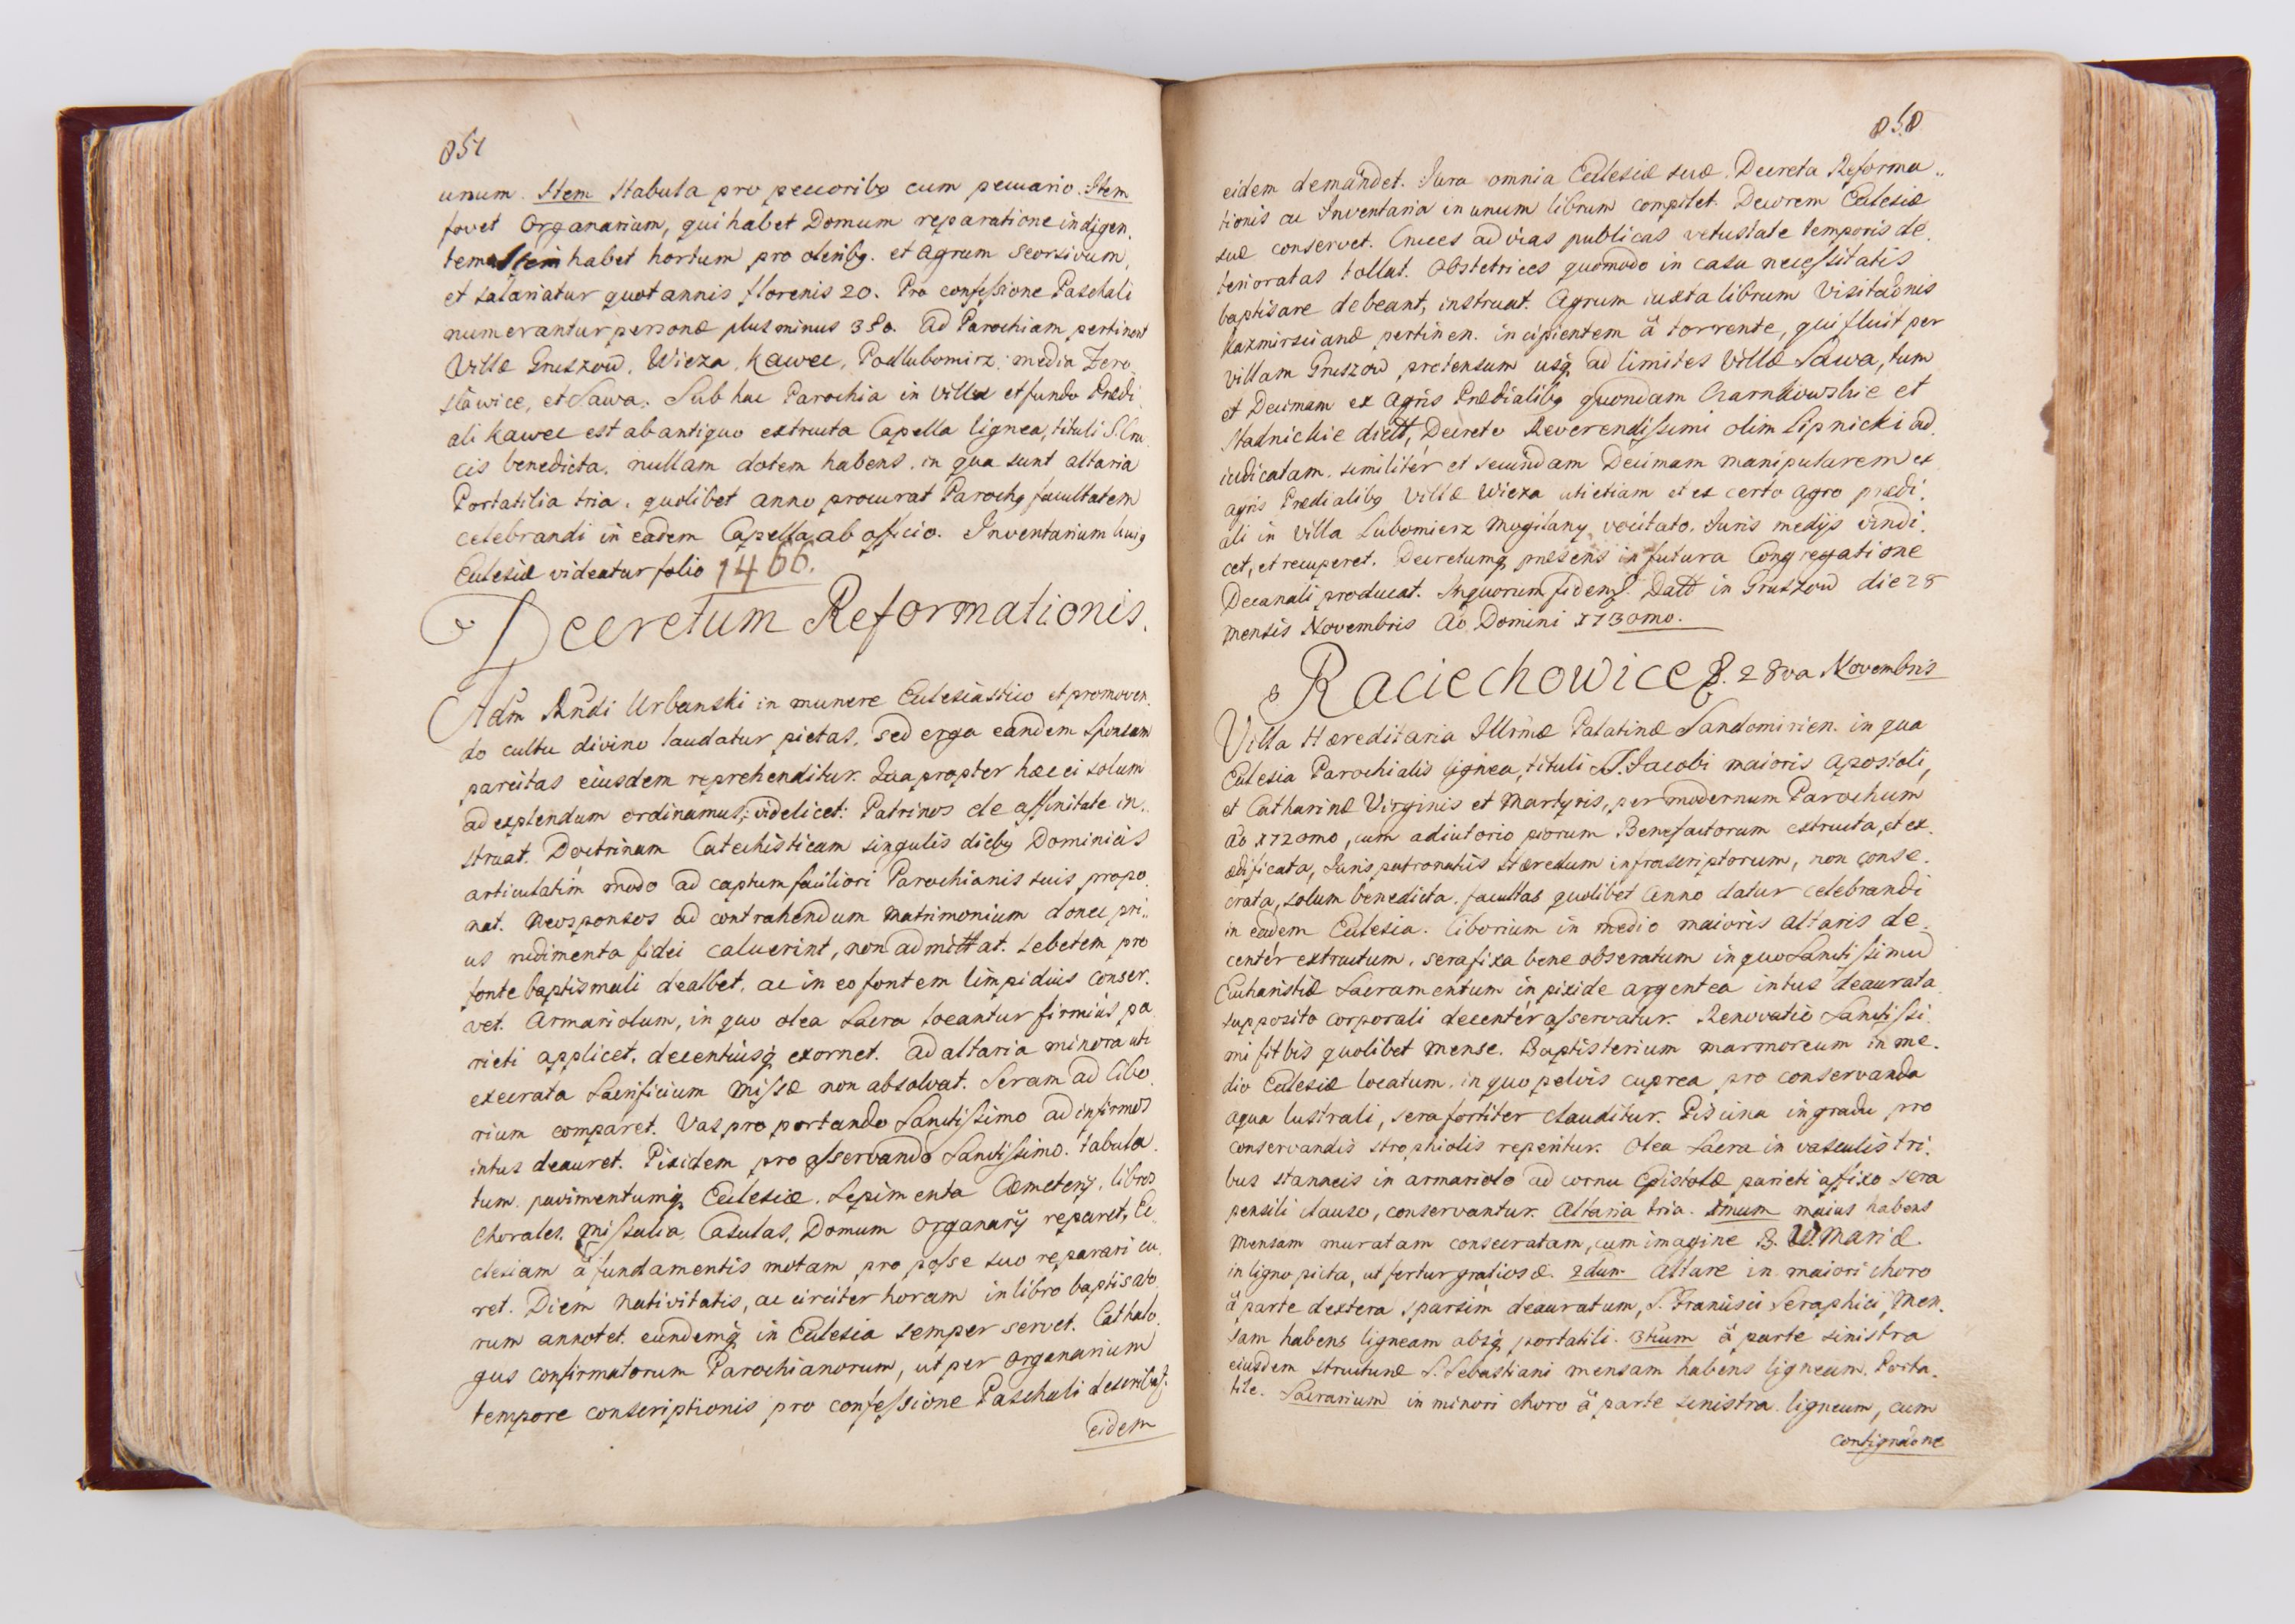 857
unum. Item Stabula pro pecoribꝯ cum pecuario. Item
fovet Organarium, qui habet Domum reparatione indigen.
tem Item habet hortum pro oleribꝯ. et agrum seorsivum,
et salariatur quotannis florenis 20. Pro confessione Paschali
numerantur personæ plus minus 380. Ad Parochiam pertinent
Villæ Gruszow, Wieza, Kawec, Podlubomirz, media Zero
sławice, et Sawa. Sub hac Parochia in Villa et fundo Prædi
ali Kawec est ab antiquo extructa Capella lignea, tituli S. Cru
cis benedicta, nullam dotem habens, in qua sunt altaria
Portatilia tria, quolibet anno procurat Parochꝯ facultatem
celebrandi in eadem Capella ab officio. Inventarium huiꝯ
Eclesiæ videatur folio 1466.
Decretum Reformationis.
Adm Rndi Urbanski in munere Eclesiastico et promoven.
do cultu divino laudatur pietas, sed erga eandem Sponsam
parcitas eiusdem reprehenditur. Quapropter hæc ei solum
ad explendum ordinamus, videlicet: Patrinos de affinitate in.
struat. Doctrinam Catechisticam singulis diebꝯ Dominicis
articulatim modo ad captum faciliori Parochianis suis propo.
nat. Neosponsos ad contrahendum Matrimonium donec pri..
us rudimenta fidei caluerint, non admittat. Lebetem pro
fonte baptismali dealbet, ac in eo fontem limpidius conser.
vet. Armariolum, in quo olea Sacra locantur firmiús pa.
rieti applicet, decentiusq; exornet. Ad altaria minora uti
execrata Sacrificium Missæ non absolvat. Seram ad Cibo.
rium comparet. Vas pro portando Sanctissimo ad infirmos
intus deauret. Pixidem pro asservando Sanctissimo. tabula.
tum, pavimentumq; Eclesiæ. Sepimenta Cæmeterij, libros
Chorales, Missalia, Casulas, Domum Organarij reparet, Ec.
clesiam á fundamentis motam pro posse suo reparari cu.
ret. Diem Nativitatis, ac circiter horam in libro baptisato.
rum annotet, eundemq; in Eclesia semper servet. Cathalo.
gus confirmatorum Parochianorum, ut per organarium
tempore conscriptionis pro confessione Paschali describat.
eidem
858
eidem demandet. Iura omnia Eclesiæ suæ, Decreta Reforma..
tionis ac Inventaria in unum librum compilet. Decorem Eclesiæ
suæ conservet. Cruces ad vias publicas vetustate temporis de.
terioratas tollat. Obstetrices quomodo in casu necessitatis
baptisare debeant, instruat. Agrum iuxta librum Visitaonis
Kazmirscianæ pertinen. incipientem á torrente, qui fluit per
villam Gruszow, protensum usq; ad limites Villæ Sawa, tum
et Decimam ex Agris Prædialibꝯ quondam Czarnkowskie et
Stadnickie dictt, Decreto Reverendissimi olim Lipnicki ad.
iudicatam. similitér et secundam Decimam manipularem ex
agris Prædialibꝯ Villæ Wieza uti etiam et ex certo agro prædi.
ali in villa Lubomierz Mogilany vocitato, Iuris medijs vindi.
cet, et recuperet. Decretumq; præsens in futura Congregatione
Decanali producat. In quorum fidem. Datt in Gruszow die 28
mensis Novembris Ao Domini 1730mo.
Raciechowice. 28va Novembris
Villa Hæreditaria Illrmæ Palatinæ Sandomirien. in qua
Eclesia Parochialis lignea, tituli S. Iacobi maioris Apostoli,
et Catharinæ Virginis et Martyris, per modernum Parochum
Ao 1720mo, cum adiutorio piorum Benefactorum extructa, et ex.
ædificata, Iuris patronatús Hæredum infrascriptorum, non conse.
crata, solum benedicta, facultas quolibet Anno datur celebrandi
in eadem Eclesia. Ciborium in medio maioris altaris de.
centér extructum, sera fixa bene obseratum in quo Sanctissimæ
Eucharistiæ Sacramentum in pixide argentea intus deaurata
supposito corporali decentér asservatur. Renovatio Sanctissi.
mi fit bis quolibet mense. Baptisterium marmoreum in me.
dio Eclesiæ locatum, in quo pelvis cuprea pro conservanda
aqua lustrali, sera fortiter clauditur. Piscina in gradu pro
conservandis strophiolis reperitur. Olea Sacra in vasculis tri.
bus stanneis in armariolo ad cornu Epistolæ parieti affixo sera
pensili clauso, conservantur. Altaria tria. 1mum maius habens
Mensam muratam consecratam, cum imagine B. V. Mariæ.
in ligno picta, ut fertur gratiosæ. 2dum Altare in maiori choro
á parte dextera sparsim deauratum, S. Francisci Seraphici, Men.
sam habens ligneam absq; portatili. 3tium á parte sinistra
eiusdem structuræ S. Sebastiani mensam habens ligneam. Porta.
tile. Sacrarium in minori choro á parte sinistra ligneum, cum
contignaone